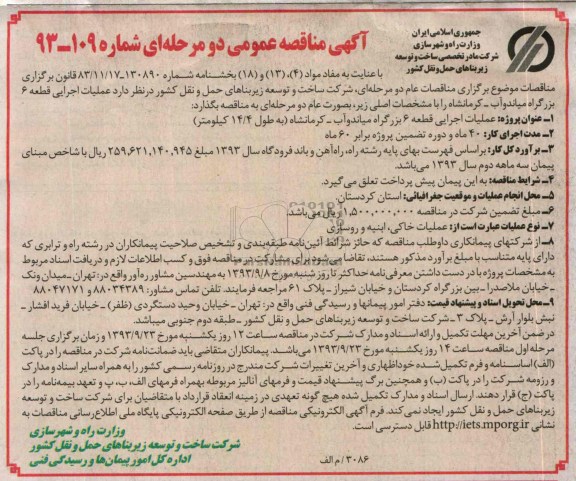 جمهوری اسلامی ایران
وزارت راه و شهرسازی
شرکت مادر تخصصی ساخت و توسعه
زیربناهای حمل و نقل کشور
آگهی مناقصه عمومی دو مرحله‌ای شماره ۱۰۹ــ۹۳
با عنایت به مفاد مواد (۴)، (۱۳) و (۱۸) بخشنامه شماره ۱۳۰۸۹۰ــ۸۳/۱۱/۱۷ قانون برگزاری
مناقصات موضوع برگزاری مناقصات عام دو مرحله‌ای، شرکت ساخت و توسعه زیربناهای حمل و نقل کشور در نظر دارد عملیات اجرایی قطعه ۶
بزرگراه میاندوآب ـ کرمانشاه را با مشخصات اصلی زیر، بصورت عام دو مرحله‌ای به مناقصه بگذارد:
۱ـ عنوان پروژه: عملیات اجرایی قطعه ۶ بزرگراه میاندوآب ـ کرمانشاه (به طول ۱۴/۴ کیلومتر)
۲ـ مدت اجرای کار: ۴۰ ماه و دوره تضمین پروژه برابر ۶۰ ماه
۳ـ برآورد کل کار: براساس فهرست بهای پایه رشته راه، راه‌آهن و باند فرودگاه سال ۱۳۹۳ مبلغ ۲۵۹,۶۲۱,۱۴۰,۹۴۵ ریال با شاخص مبنای
پیمان سه ماهه دوم سال ۱۳۹۳ می‌باشد.
۴ـ شرایط مناقصه: به این پیمان پیش پرداخت تعلق می‌گیرد.
۵ـ محل انجام عملیات و موقعیت جغرافیائی: استان کردستان.
۶ـ مبلغ تضمین شرکت در مناقصه ۱,۵۰۰,۰۰۰,۰۰۰ ریال می‌باشد.
۷ـ نوع عملیات عبارت است از: عملیات خاکی، ابنیه و روسازی
۸ـ از شرکتهای پیمانکاری داوطلب مناقصه که حائز شرائط آئین‌نامه طبقه‌بندی و تشخیص صلاحیت پیمانکاران در رشته راه و ترابری که
دارای پایه متناسب با مبلغ برآورد مذکور هستند، تقاضا می‌شود برای مشارکت در مناقصه فوق و کسب اطلاعات لازم و دریافت اسناد مربوط
به مشخصات پروژه با در دست داشتن معرفی‌نامه حداکثر تا روز شنبه مورخ ۱۳۹۳/۹/۸ به مهندسین مشاور ره‌آور واقع در: تهران ـ میدان ونک
ـ خیابان ملاصدرا ـ بین بزرگراه کردستان و خیابان شیراز ـ پلاک ۶۱ مراجعه فرمایند. تلفن تماس مشاور: ۸۸۰۳۴۳۸۹ و ۸۸۰۴۷۱۷۱
۹ـ محل تحویل اسناد و پیشنهاد قیمت: دفتر امور پیمانها و رسیدگی فنی واقع در: تهران ـ خیابان وحید دستگردی (ظفر) ـ خیابان فرید افشار ـ
نبش بلوار آرش ـ پلاک ۳ ـ شرکت ساخت و توسعه زیربناهای حمل و نقل کشور ـ طبقه دوم جنوبی میباشد.
در ضمن آخرین مهلت تکمیل و ارائه اسناد و مدارک شرکت در مناقصه ساعت ۱۲ روز یکشنبه مورخ ۱۳۹۳/۹/۲۳ و زمان برگزاری جلسه
مرحله اول مناقصه ساعت ۱۴ روز یکشنبه مورخ ۱۳۹۳/۹/۲۳ می‌باشد. پیمانکاران متقاضی باید ضمانت‌نامه شرکت در مناقصه را در پاکت
(الف) اساسنامه و فرم تکمیل‌شده خوداظهاری و آخرین تغییرات شرکت مندرج در روزنامه رسمی کشور را به همراه سایر اسناد و مدارک
و رزومه شرکت را در پاکت (ب) و همچنین برگ پیشنهاد قیمت و فرمهای آنالیز مربوطه بهمراه فرمهای الف، ب، پ و تعهد بیمه‌نامه را در
پاکت (ج) قرار دهند. ارسال اسناد و مدارک تکمیل شده هیچ گونه تعهدی در زمینه انعقاد قرارداد با متقاضیان برای شرکت ساخت و توسعه
زیربناهای حمل و نقل کشور ایجاد نمی‌کند. فرم آگهی الکترونیکی مناقصه از طریق صفحه الکترونیکی پایگاه ملی اطلاع‌رسانی مناقصات به
نشانی http://iets.mporg.ir قابل دسترسی است.
وزارت راه و شهرسازی
شرکت ساخت و توسعه زیربناهای حمل و نقل کشور
اداره کل امور پیمان‌ها و رسیدگی فنی
۳۰۸۶ / م الف